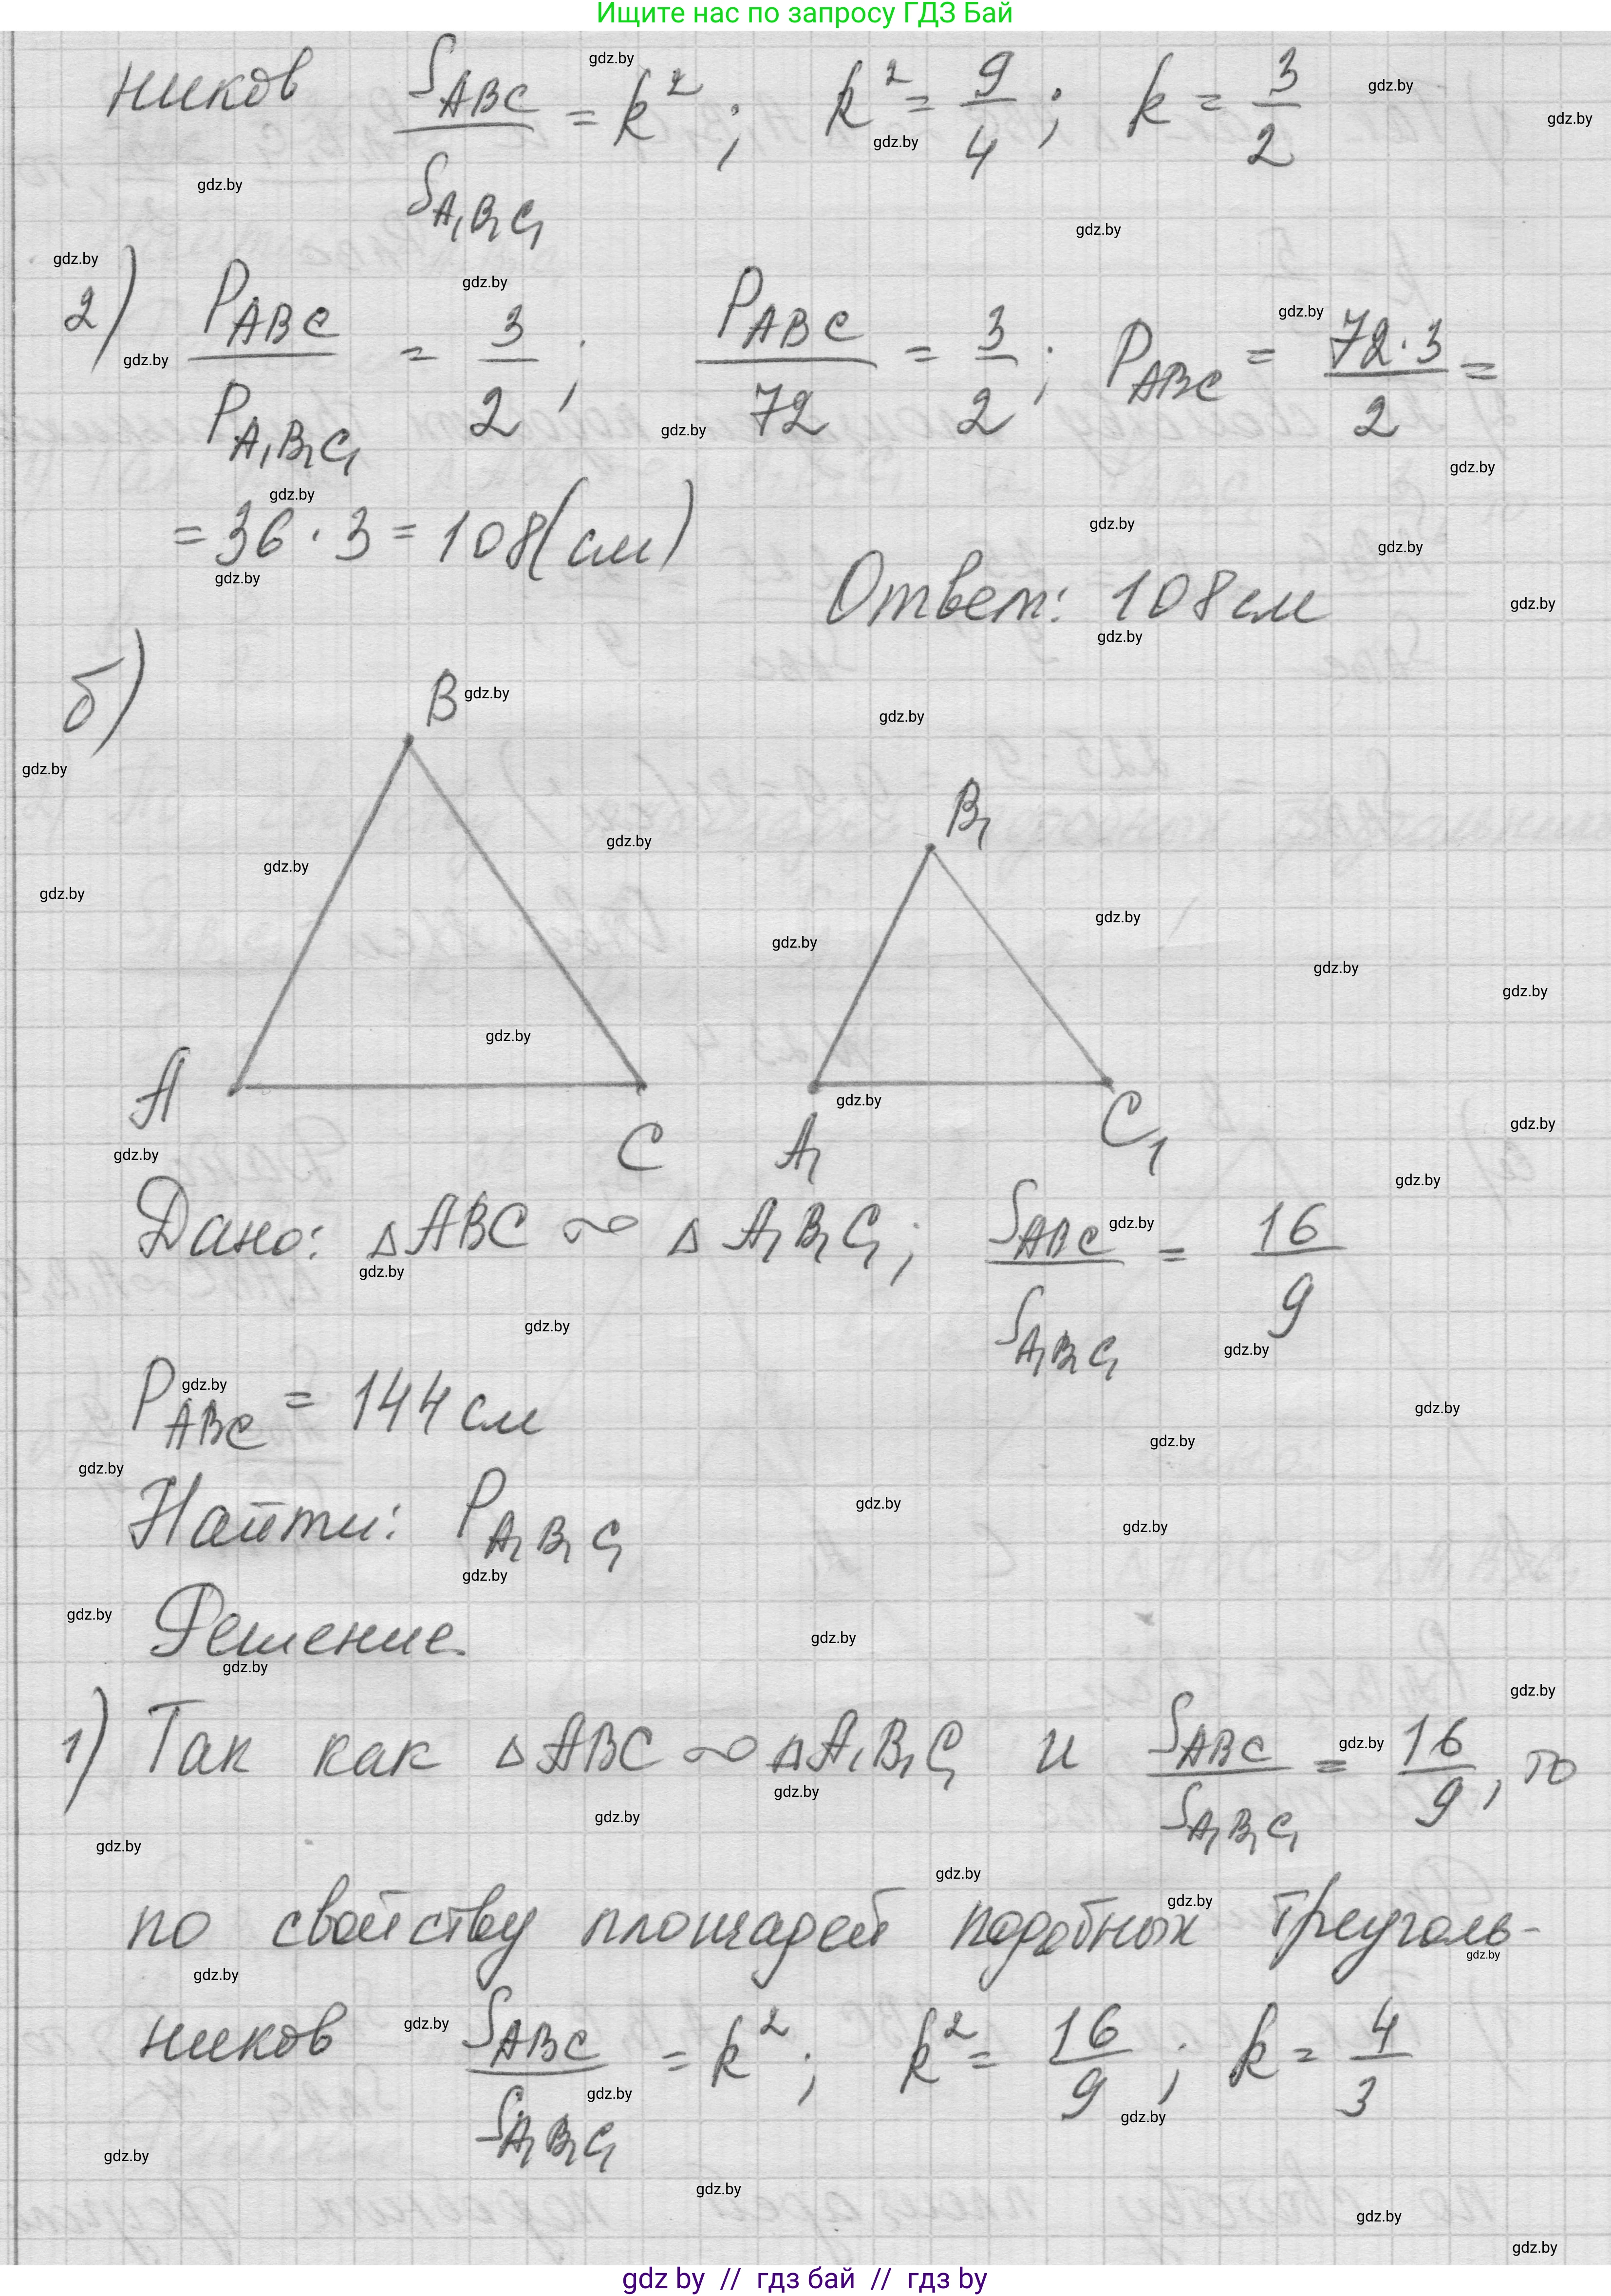 Ищите нас по запросу ГДЗ Бай
ников S_ABC / S_A₁B₁C₁ = k²; k² = 9/4; k = 3/2
2) P_ABC / P_A₁B₁C₁ = 3/2; P_ABC / 72 = 3/2; P_ABC = 72·3 / 2 =
= 36·3 = 108(см)
Ответ: 108 см
б)
B
B₁
A
C
A₁
C₁
Дано: △ABC ∾ △A₁B₁C₁; S_ABC / S_A₁B₁C₁ = 16/9
P_ABC = 144 см
Найти: P_A₁B₁C₁
Решение.
1) Так как △ABC ∾ △A₁B₁C₁ и S_ABC / S_A₁B₁C₁ = 16/9, то
по свойству площадей подобных треуголь-
ников S_ABC / S_A₁B₁C₁ = k²; k² = 16/9; k = 4/3
gdz by // гдз бай // гдз by